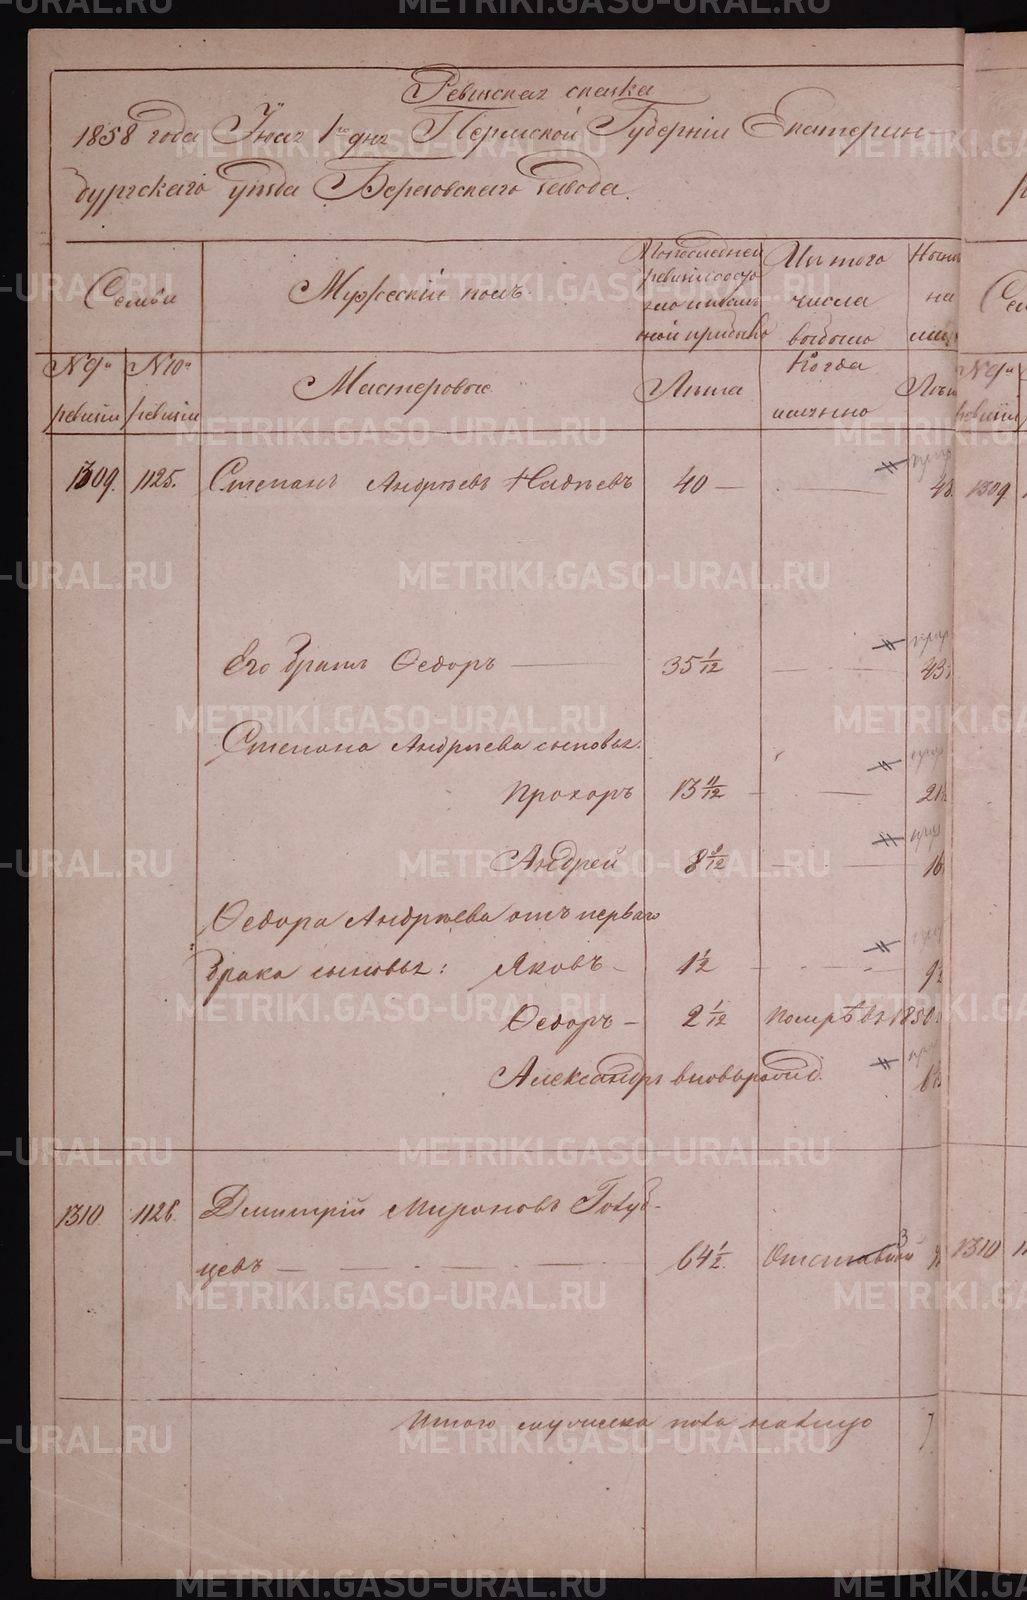 Ревизская сказка
1858 года Июня 1го дня Пермской Губернии Екатерин-
бургскаго уезда Березовскаго завода.
Семьи
Мужескій полъ.
По последней ревизіи состояло и после оной прибыло
Изъ того числа выбыло
Ныне на лицо
№ 9й ревизіи
№ 10й ревизіи
Мастеровые
Лета
Когда именно
Лета
№ 9й ревизіи
1309. 1125. Степанъ Андреевъ Надеевъ 40 — 48 1309
Его братъ Федоръ — 35 1/12 — 43
Степана Андреева сыновья:
Прохоръ 13 11/12 — 21
Андрей 8 9/12 — 16
Федора Андреева отъ перваго
брака сыновья: Яковъ — 1 1/2 — 9
Федоръ — 2 1/12 Померъ въ 1850
Александръ вновьрожд. 6
1310. 1126. Дмитрій Мироновъ Голуб-
цевъ — 64 1/2. Отставной 1310
Итого мужеска пола налицо 7
METRIKI.GASO-URAL.RU